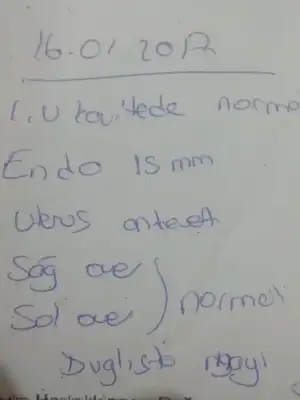 16.01 2017
I.U kavitede norme
Endo 15 mm
Uterus antevert
Sağ over
Sol over
normal
Duglasta